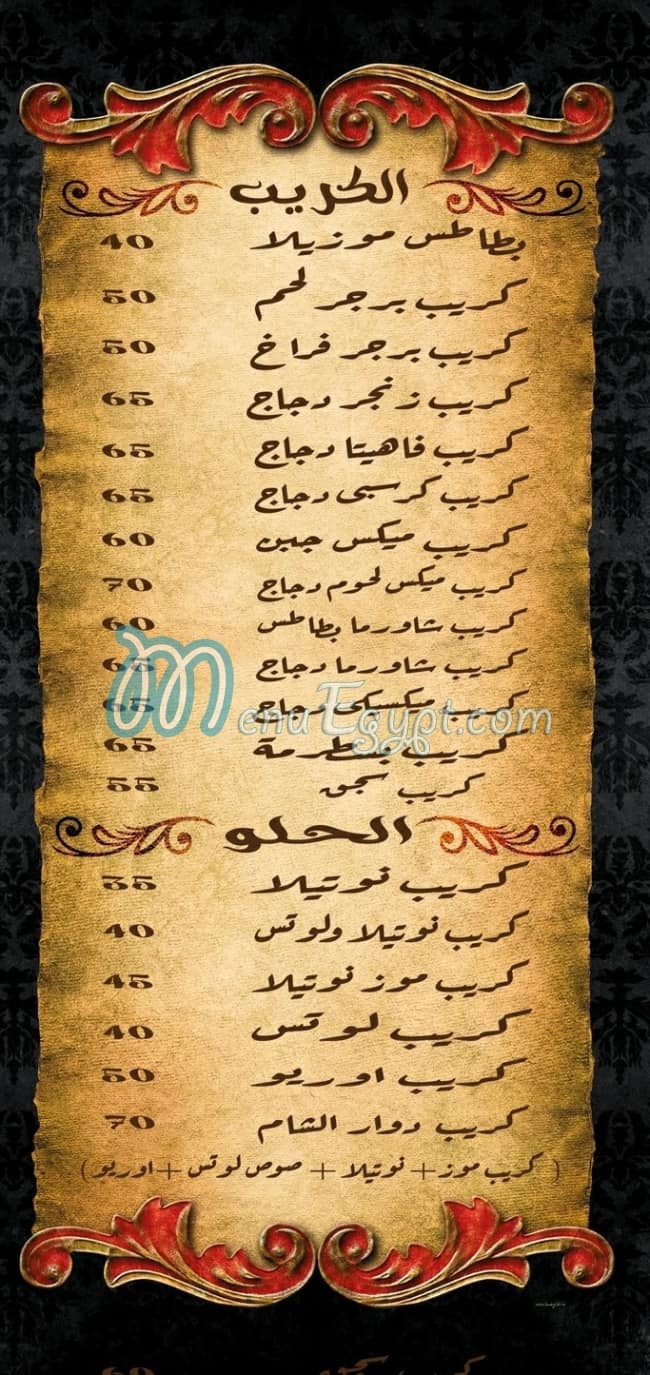 الكريب
بطاطس موزيلا 40
كريب برجر لحم 50
كريب برجر فراخ 50
كريب زنجر دجاج 65
كريب فاهيتا دجاج 65
كريب كرسبى دجاج 65
كريب ميكس جبن 60
كريب ميكس لحوم دجاج 70
كريب شاورما بطاطس 60
كريب شاورما دجاج 65
كريب ميكسيكى دجاج 65
MenuEgypt.com
كريب بسطرمة 65
كريب سجق 55
الحلو
كريب نوتيلا 35
كريب نوتيلا ولوتس 40
كريب موز نوتيلا 45
كريب لوتس 40
كريب اوريو 50
كريب دوار الشام 70
( كريب موز + نوتيلا + صوص لوتس + اوريو )